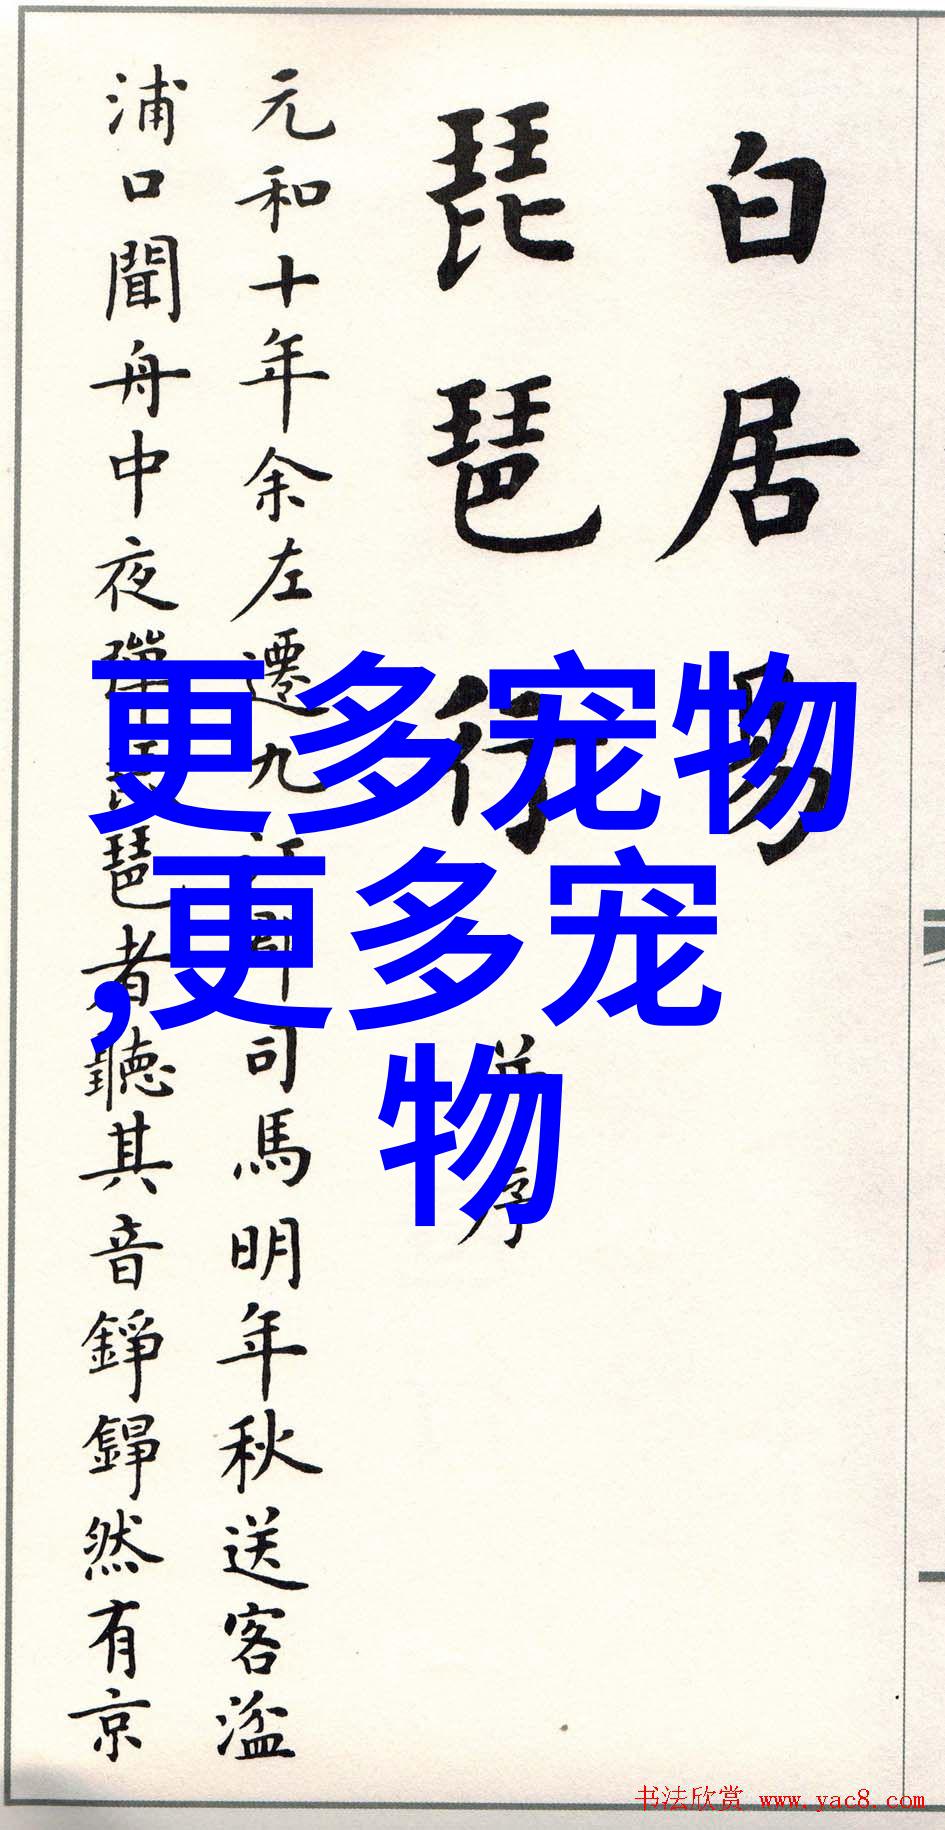 白居易
琵琶行 并序
元和十年余左遷九江郡司馬明年秋送客湓
浦口聞舟中夜彈琵琶者聽其音錚錚然有京
更多宠物
,更多宠
物
书法欣赏 www.yac8.com